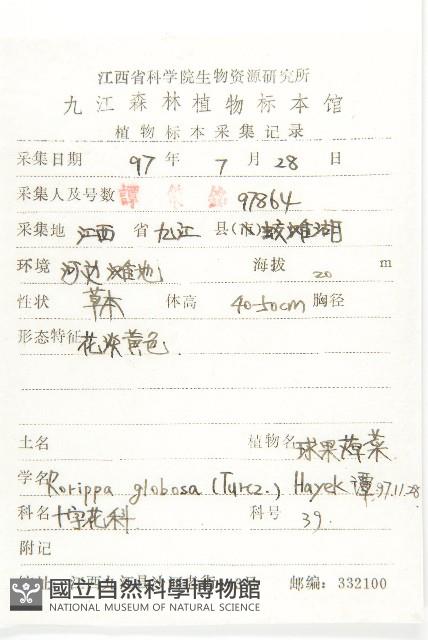 江西省科学院生物资源研究所
九江森林植物标本馆
植物标本采集记录
采集日期 97 年 7 月 28 日
采集人及号数 譚 97864
采集地 江西 省 九江 县(市) 滩湖
环境 河边滩地 海拔 20 m
性状 草本 体高 40-50cm 胸径
形态特征 花淡黄色.
土名 植物名 球果蔊菜
学名 Rorippa globosa (Turcz.) Hayek 谭 97.11.28
科名 十字花科 科号 39.
附记
邮编: 332100
國立自然科學博物館
NATIONAL MUSEUM OF NATURAL SCIENCE